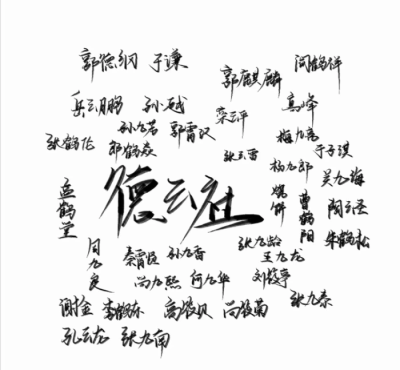 郭德纲 于谦
郭麒麟 阎鹤祥
岳云鹏 孙越 栾云平 高峰
孙九芳 郭霄汉 梅九亮
张鹤伦 郎鹤焱 张云雷 于子淇
杨九郎 吴九海
孟鹤堂 德云社 烧饼 曹鹤阳 陶云圣
朱鹤松
周九良 秦霄贤 孙九香 张九龄 王九龙
尚九熙 何九华 刘筱亭
谢金 李鹤东 高筱贝 尚筱菊 张九泰
孔云龙 张九南